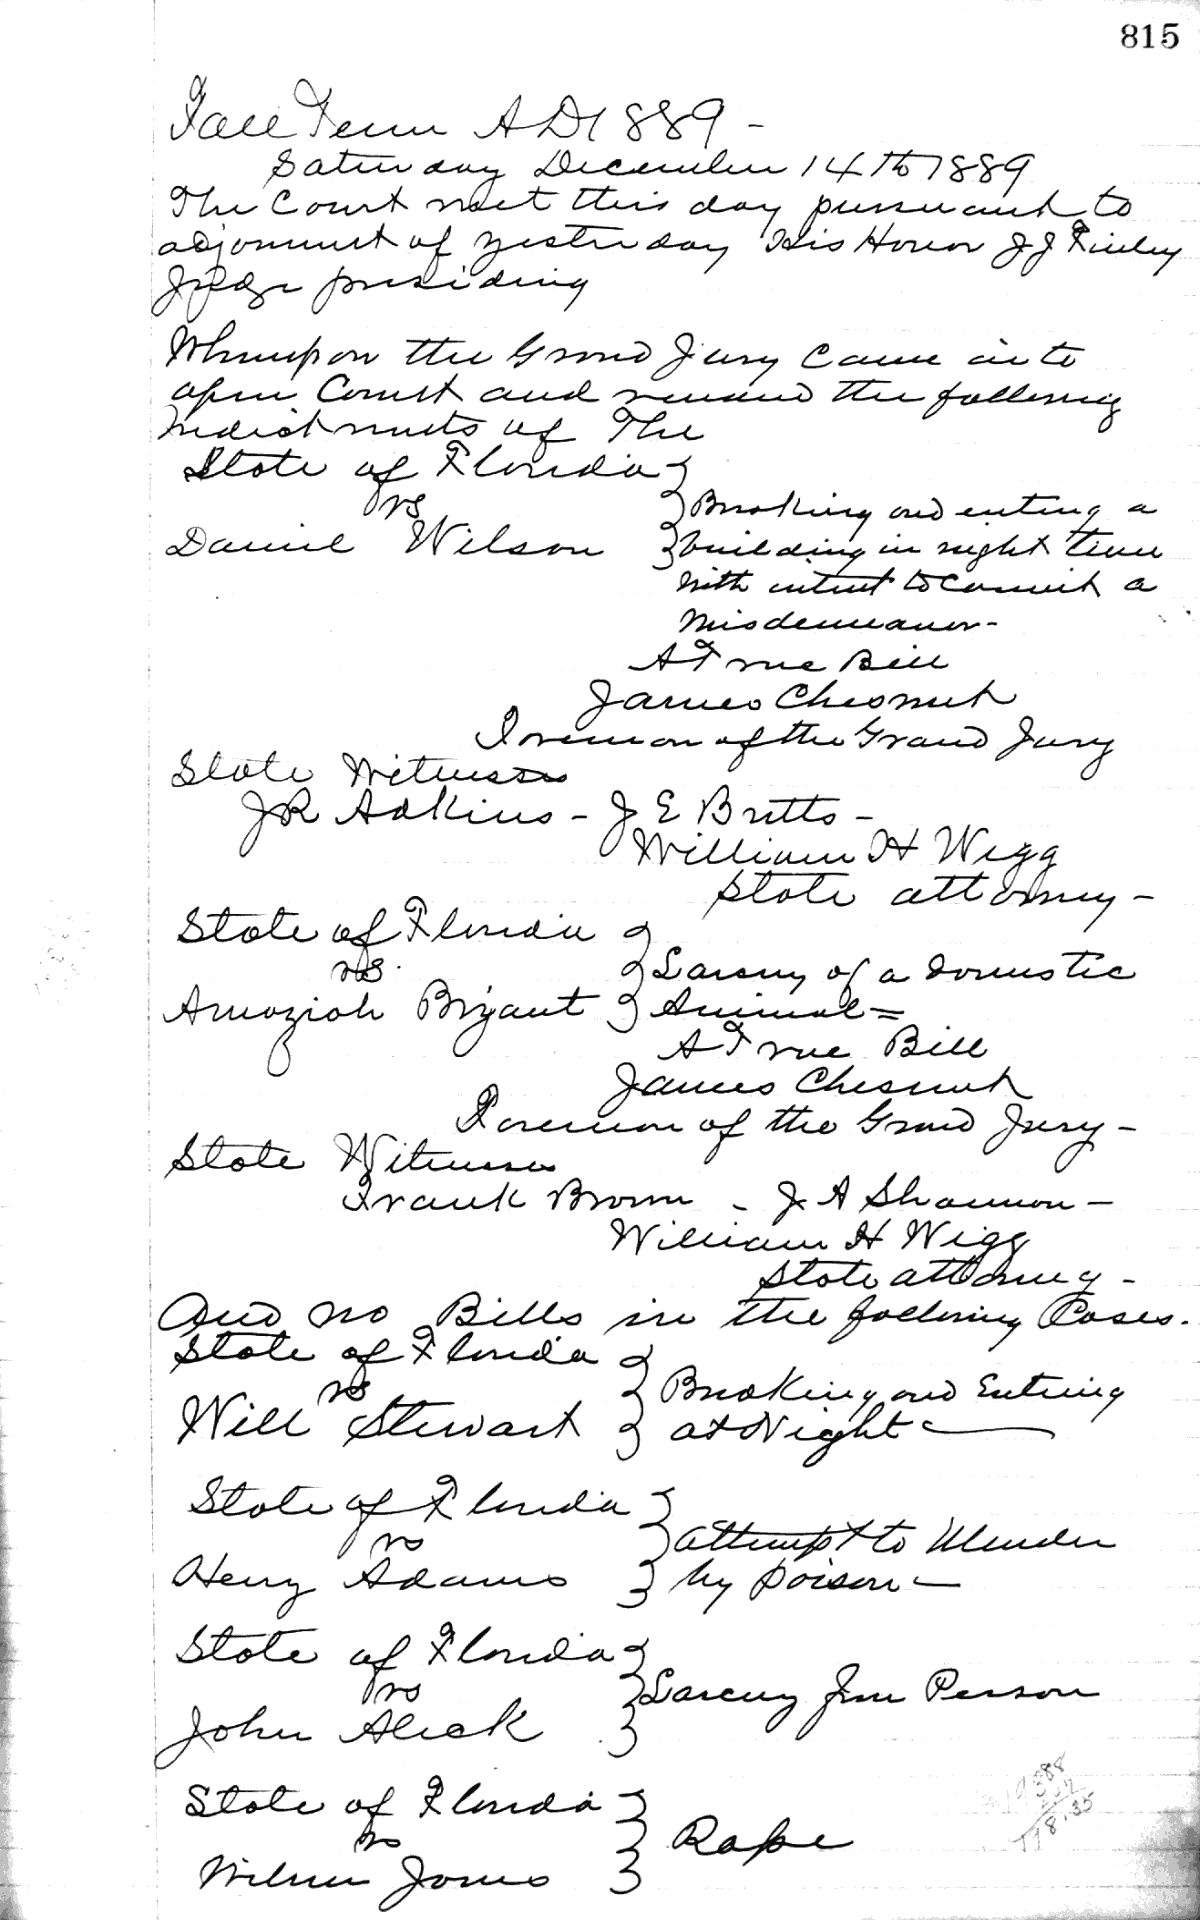 815
Fall Term AD 1889 -
Saturday December 14th 1889
The Court met this day pursuant to
adjornmet of yesterday His Honor J J Finley
Judge presiding
Whereupon the Grand Jury Came into
open Court and the following
Indictments of The
State of Florida
vs
Daniel Wilson
Breaking and entering a
building in night time
with intent to Commit a
Misdemeanor-
A True Bill
James Chesnut
Foreman of the Grand Jury
State Witnesses
JR Adkins - J E Britts -
William H Wigg
State attorney -
State of Florida
vs
Amoziah Bryant
Larceny of a domestic
Animal =
A True Bill
James Chesnut
Foreman of the Grand Jury -
State Witnesses
Frank Brown - J A Shannon -
William H Wigg
State attorney -
And no Bills in the following Cases.
State of Florida
vs
Will Stewart
Breaking and Entering
at Night
State of Florida
vs
Henry Adams
attempt to Murder
by poison -
State of Florida
vs
John Alick
Larceny from Person
State of Florida
vs
Jones
Rape